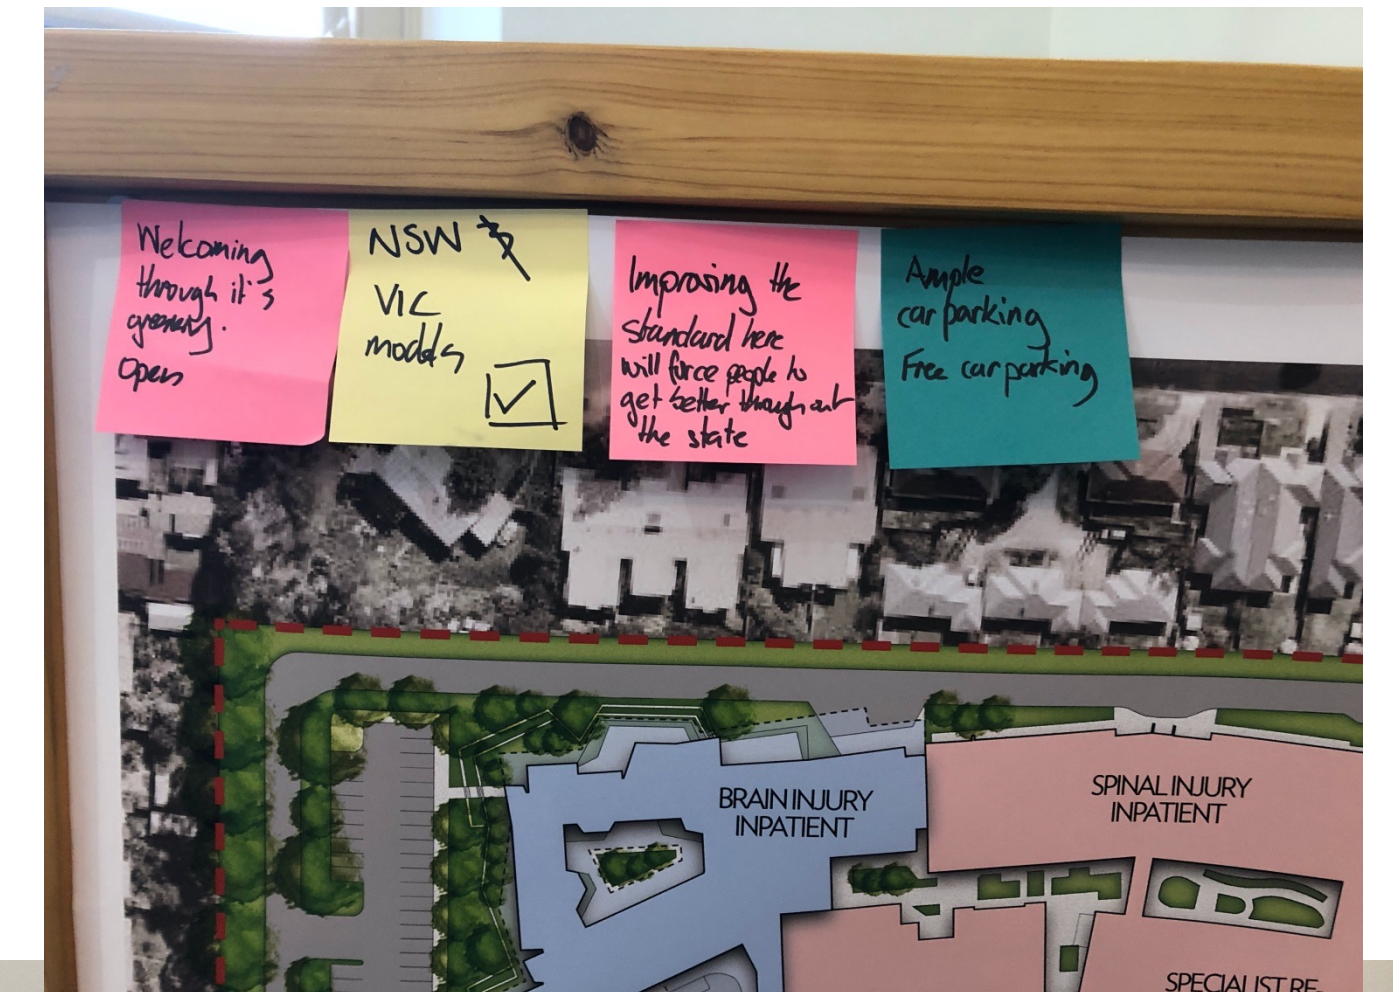 Welcoming
through it's
greenery.
Open
NSW
VIC
models
Improving the
standard here
will force people to
get better throughout
the state
Ample
car parking
Free car parking
BRAIN INJURY
INPATIENT
SPINAL INJURY
INPATIENT
SPECIALIST RE-